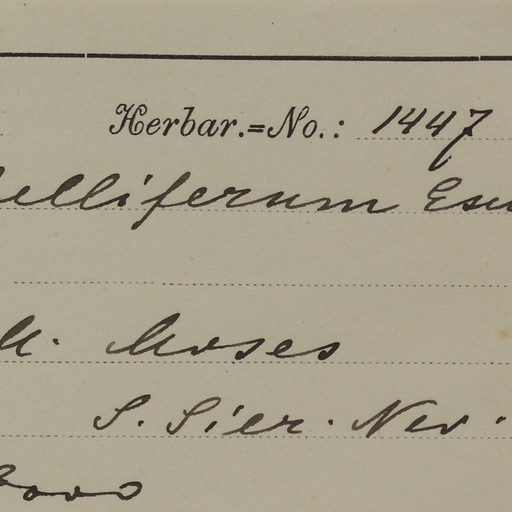 Herbar.=No.: 1447
elliferum Esc
M. Moses
S. Sier. Nev.